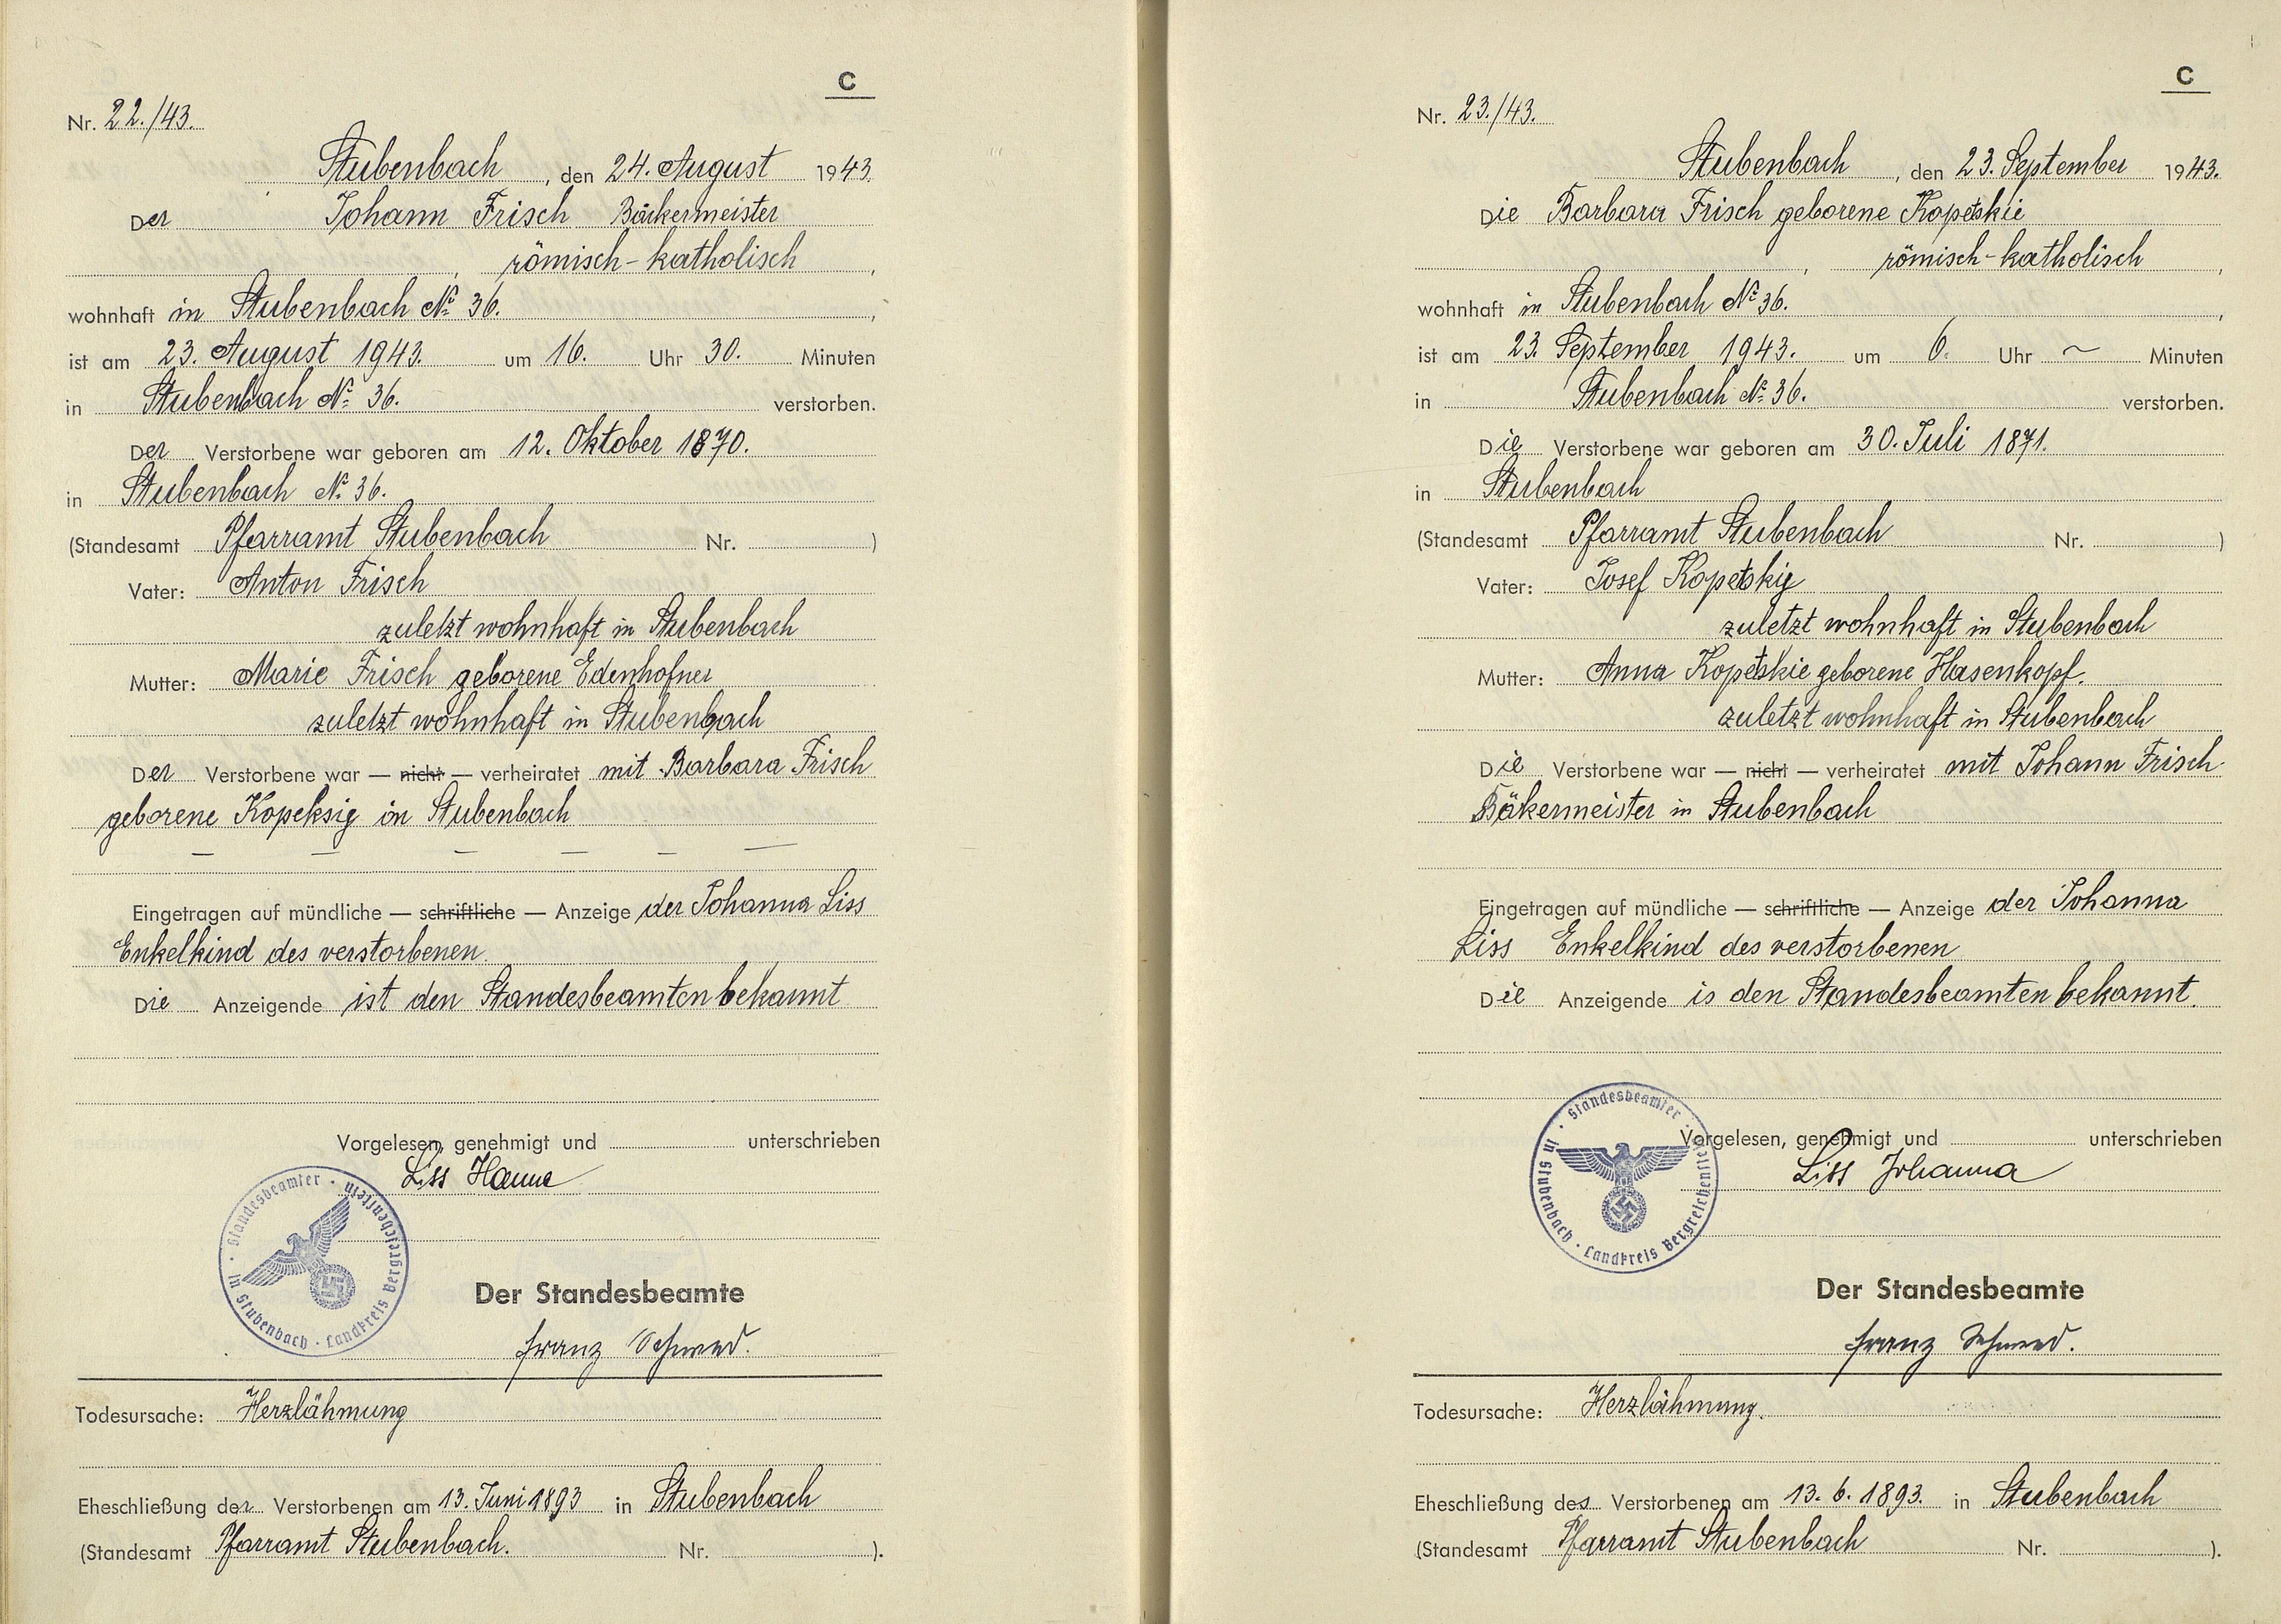 C
Nr. 22./43.
Stubenbach, den 24. August 1943.
Der Johann Frisch Bäckermeister
, römisch-katholisch,
wohnhaft in Stubenbach № 36.,
ist am 23. August 1943. um 16. Uhr 30. Minuten
in Stubenbach № 36. verstorben.
Der Verstorbene war geboren am 12. Oktober 1870.
in Stubenbach № 36.
(Standesamt Pfarramt Stubenbach Nr. )
Vater: Anton Frisch
zuletzt wohnhaft in Stubenbach
Mutter: Marie Frisch geborene Edenhofner
zuletzt wohnhaft in Stubenbach
Der Verstorbene war — nicht — verheiratet mit Barbara Frisch
geborene Kopeksig in Stubenbach
— — — — — —
Eingetragen auf mündliche — schriftliche — Anzeige der Johanna Liss
Enkelkind des verstorbenen.
Die Anzeigende ist den Standesbeamten bekannt
Vorgelesen, genehmigt und unterschrieben
Liss Hanne
Standesbeamter · in Stubenbach · Landkreis Bergreichenstein ·
Der Standesbeamte
Franz Schmed.
Todesursache: Herzlähmung
Eheschließung der Verstorbenen am 13. Juni 1893 in Stubenbach
(Standesamt Pfarramt Stubenbach. Nr. ).
C
Nr. 23./43.
Stubenbach, den 23. September 1943.
Die Barbara Frisch geborene Kopetskie
, römisch-katholisch,
wohnhaft in Stubenbach № 36.,
ist am 23. September 1943. um 6. Uhr ~ Minuten
in Stubenbach № 36. verstorben.
Die Verstorbene war geboren am 30. Juli 1871.
in Stubenbach
(Standesamt Pfarramt Stubenbach Nr. )
Vater: Josef Kopetskig
zuletzt wohnhaft in Stubenbach
Mutter: Anna Kopetskie geborene Hasenkopf.
zuletzt wohnhaft in Stubenbach
Die Verstorbene war — nicht — verheiratet mit Johann Frisch
Bäkermeister in Stubenbach
Eingetragen auf mündliche — schriftliche — Anzeige der Johanna
Liss Enkelkind des verstorbenen
Die Anzeigende is den Standesbeamten bekannt.
Vorgelesen, genehmigt und unterschrieben
Liss Johanna
Standesbeamter · in Stubenbach · Landkreis Bergreichenstein ·
Der Standesbeamte
Franz Schmed.
Todesursache: Herzlähmung.
Eheschließung des Verstorbenen am 13. 6. 1893. in Stubenbach
(Standesamt Pfarramt Stubenbach Nr. ).